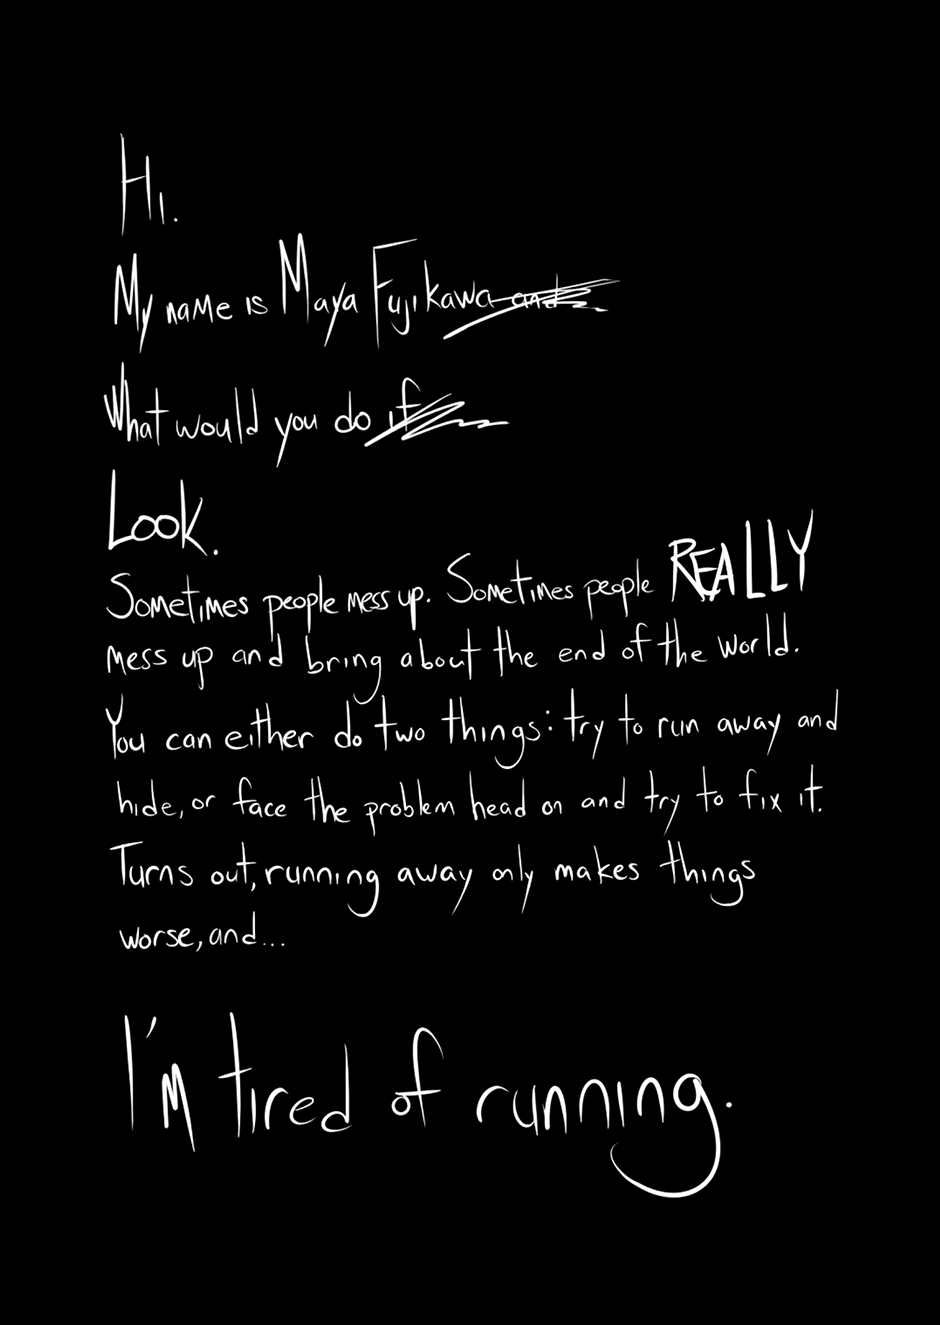 Hi.
My name is Maya Fujikawa and
What would you do if
Look.
Sometimes people mess up. Sometimes people REALLY
mess up and bring about the end of the world.
You can either do two things: try to run away and
hide, or face the problem head on and try to fix it.
Turns out, running away only makes things
worse, and...
I'm tired of running.